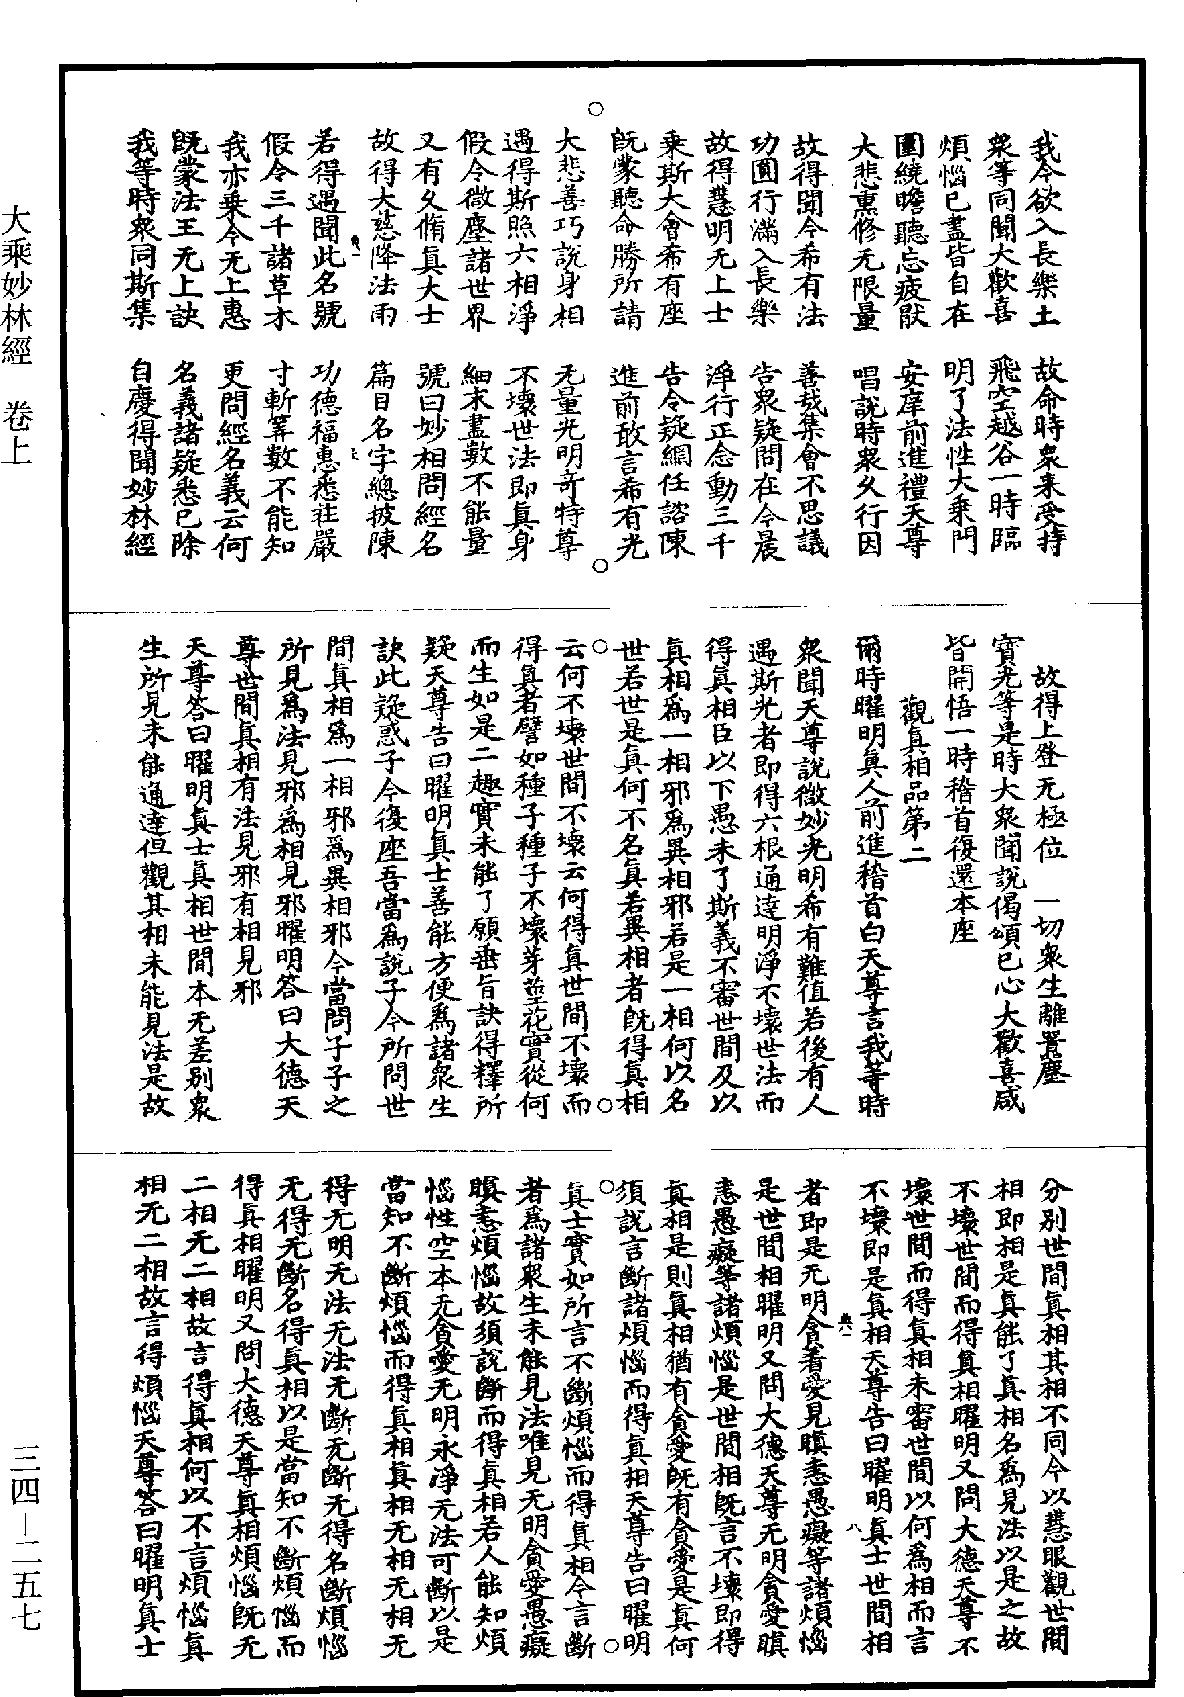 大乘妙林經　卷上
三四－二五七
我今欲入長樂土　故命時衆来受持
衆等同聞大歡喜　飛空越谷一時臨
煩惱已盡皆自在　明了法性大乗門
圍繞瞻聽忘疲猒　安庠前進禮天尊
大悲熏修无限量　唱說時衆久行因
故得聞今希有法　善㢤集會不思議
功圓行滿入長樂　告衆疑問在今晨
故得慧明无上士　淨行正念動三千
乗斯大會希有座　告令疑網任諮陳
旣蒙聽命勝所請　進前敢言希有光
大悲善巧說身相　无量光明竒特尊
遇得斯照六相淨　不壞世法即真身
假令微塵諸世界　細末盡數不能量
又有久脩真大士　號曰妙相問經名
故得大慈降法雨　篇目名字緫披陳
若得遇聞此名號　功德福惠悉莊嚴
假令三千諸草木　寸斬筭數不能知
我亦乗今无上惠　更問經名義云何
旣蒙法王无上訣　名義諸疑悉已除
我等時衆同斯集　自慶得聞妙林經
故得上登无極位　一切衆生離囂塵
寳光等是時大衆聞說偈頌已心大歡喜咸
皆開悟一時稽首復還本座
觀真相品第二
爾時曜明真人前進稽首白天尊言我等時
衆聞天尊說微妙光明希有難值若後有人
遇斯光者即得六根通達明淨不壞世法而
得真相臣以下愚未了斯義不審世間及以
真相爲一相邪爲異相邪若是一相何以名
世若世是真何不名真若異相者旣得真相
云何不壞世間不壞云何得真世間不壞而
得真者譬如種子種子不壞芽莖花實從何
而生如是二趣實未能了願垂旨訣得釋所
疑天尊告曰曜明真士善能方便爲諸衆生
訣此疑惑子今復座吾當爲說子今所問世
間真相爲一相邪爲異相邪今當問子子之
所見爲法見邪爲相見邪曜明荅曰大德天
尊世間真相有法見邪有相見邪
天尊荅曰曜明真士真相世間本无差別衆
生所見未能通達但觀其相未能見法是故
分別世間真相其相不同今以慧眼觀世間
相即相是真能了真相名爲見法以是之故
不壞世間而得真相曜明又問大德天尊不
壞世間而得真相未審世間以何爲相而言
不壞即是真相天尊告曰曜明真士世間相
者即是无明貪著愛見瞋恚愚癡等諸煩惱
是世間相曜明又問大德天尊无明貪愛瞋
恚愚癡等諸煩惱是世間相旣言不壞即得
真相是則真相猶有貪愛旣有貪愛是真何
須說言斷諸煩惱而得真相天尊告曰曜明
真士實如所言不斷煩惱而得真相今言斷
者爲諸衆生未能見法唯見无明貪愛愚癡
瞋恚煩惱故須說斷而得真相若人能知煩
惱性空本无貪愛无明永淨无法可斷以是
當知不斷煩惱而得真相真相无相无相无
得无明无法无法无斷无斷无得名斷煩惱
无得无斷名得真相以是當知不斷煩惱而
得真相曜明又問大德天尊真相煩惱旣无
二相无二相故言得真相何以不言煩惱真
相无二相故言得煩惱天尊荅曰曜明真士